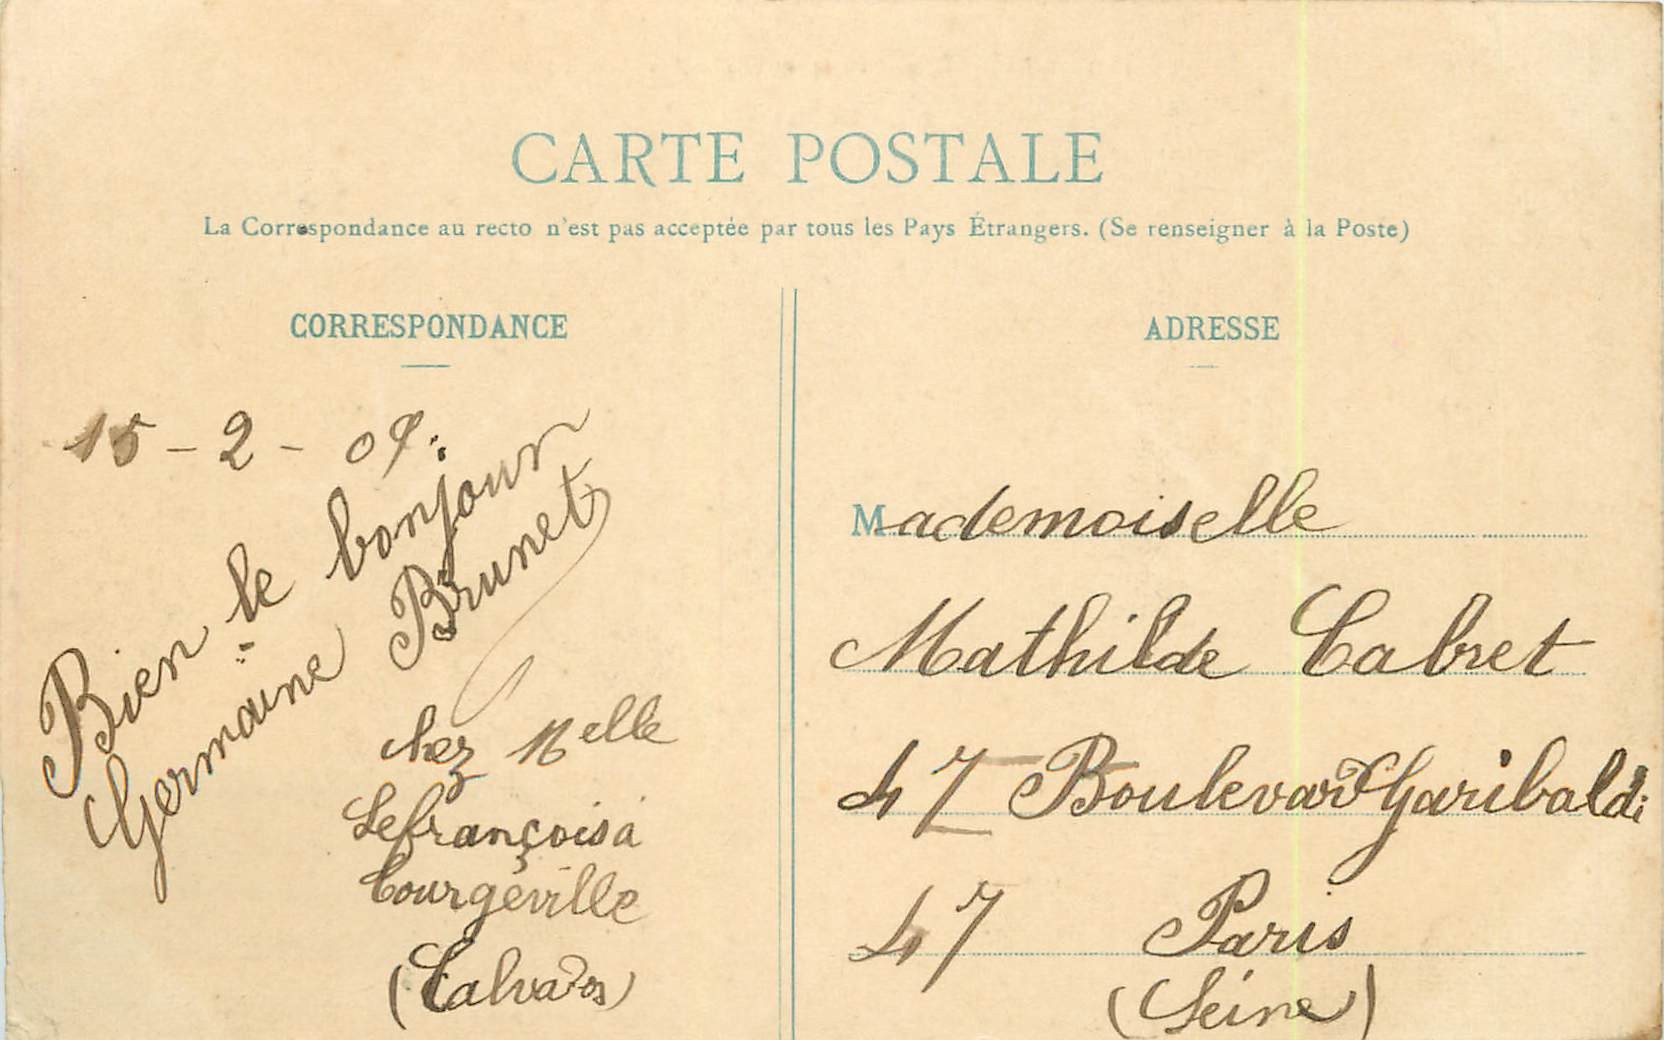 CARTE POSTALE
La Correspondance au recto n'est pas acceptée par tous les Pays Étrangers. (Se renseigner à la Poste)
CORRESPONDANCE
15 - 2 - 09.
Bien le bonjour
Germaine Brunet
chez Melle
Lefrançois à
Tourgéville
(Calvados)
ADRESSE
Mademoiselle
Mathilde Cabret
47 Boulevard Garibaldi
47 Paris
(Seine)